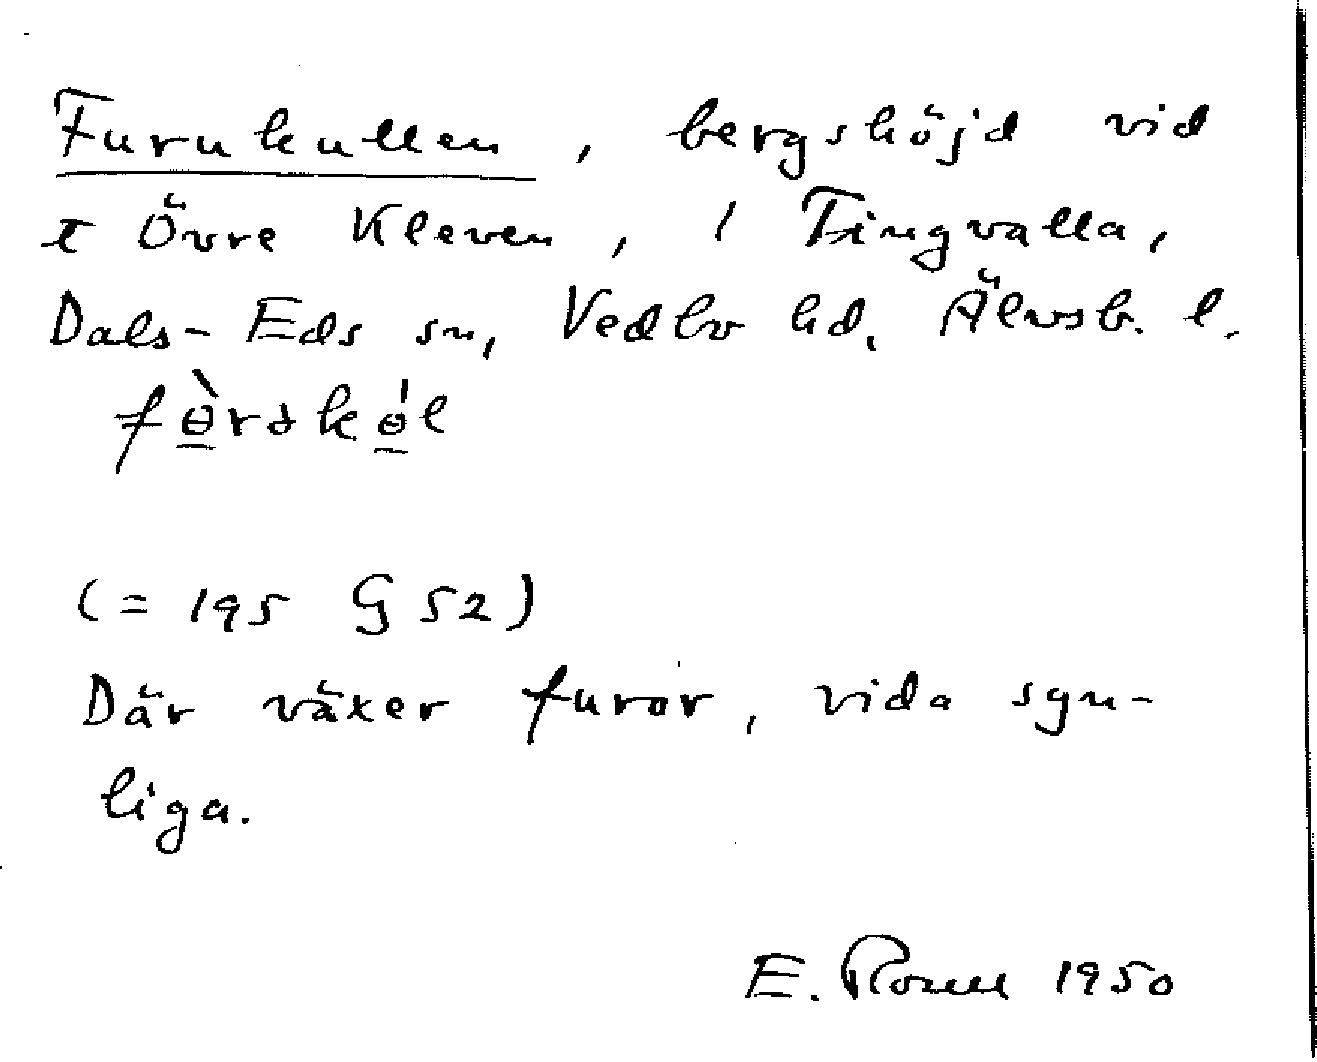 Furukullen, bergshöjd vid
t Övre Kleven, / Tingvalla,
Dals-Eds sn, Vedbo hd, Älvsb. l.
(= 195 G 52)
Där växer furor, vida syn-
liga.
E. Rosell 1950